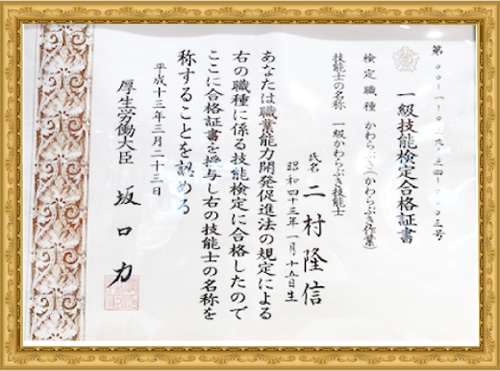 第００－１－０３９－３４－０００３号
一級技能検定合格証書
検定職種 かわらぶき(かわらぶき作業)
技能士の名称 一級かわらぶき技能士
氏名 二村隆信
昭和四十三年一月十五日生
あなたは職業能力開発促進法の規定による
右の職種に係る技能検定に合格したので
ここに合格証書を授与し右の技能士の名称を
称することを認める
平成十三年三月二十三日
厚生労働大臣 坂口力